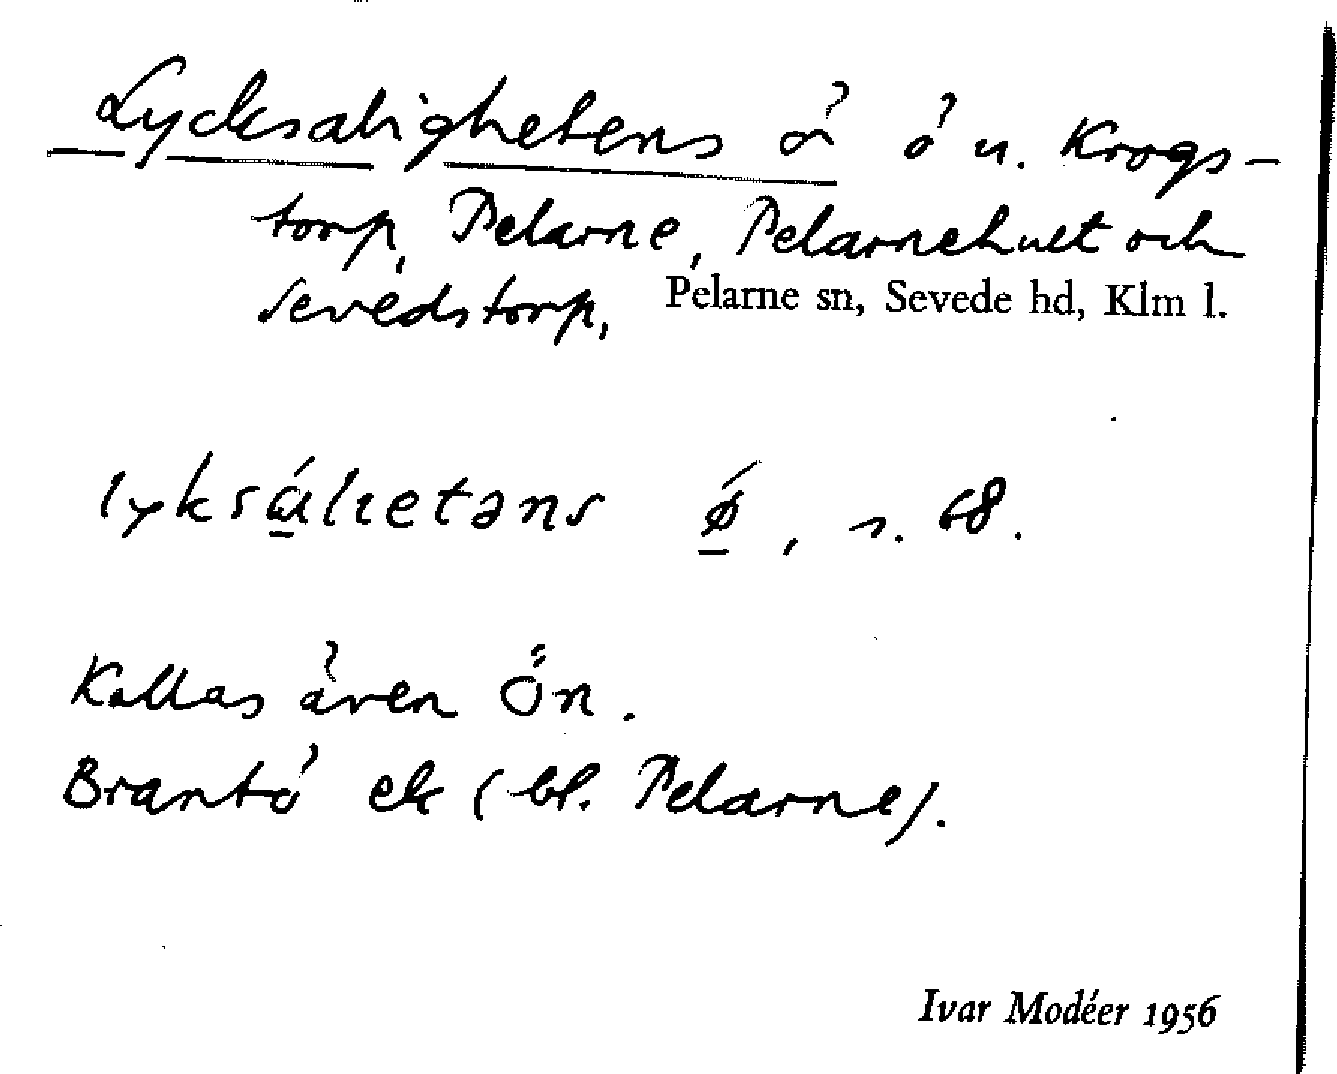 Lycksalighetens ö ö u. Krogs-
torp, Pelarne, Pelarnehult och
Sevedstorp, Pelarne sn, Sevede hd, Klm l.
lyksálietəns ǿ, s. 68.
Kallas även Ön.
Brantö ek (bl. Pelarne).
Ivar Modéer 1956